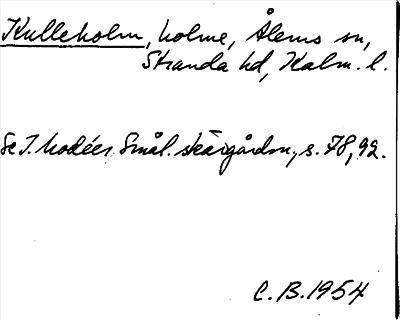 Kulleholm, holme, Ålems sn,
Stranda hd, Kalm. l.
Se I. Modéer Smål. skärgårdsn., s. 78, 92.
C. B. 1954